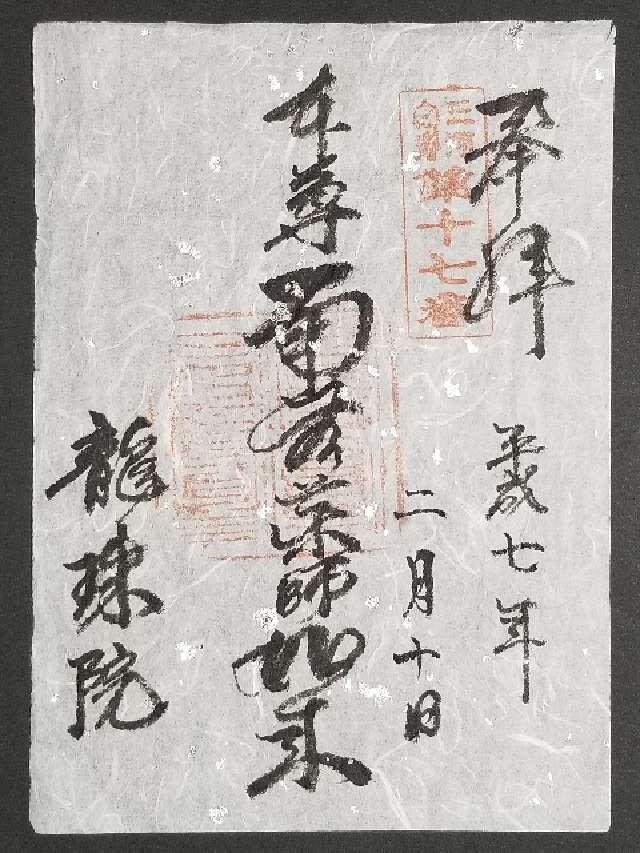 奉拝
平成七年
二月十日
第十七番
本尊南無薬師如来
龍珠院